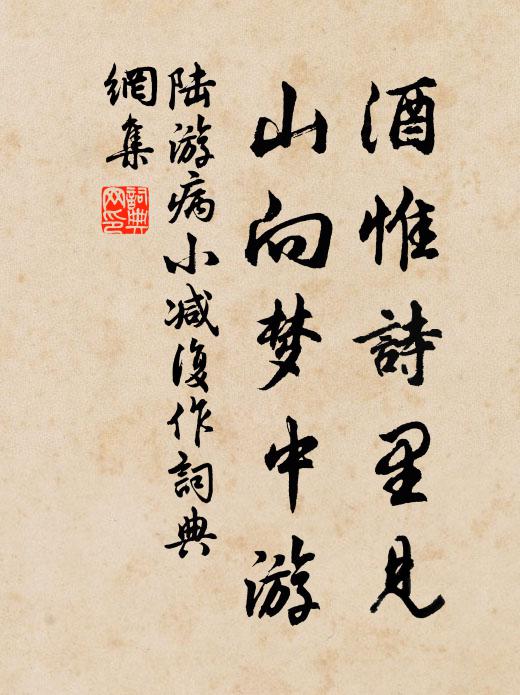 酒惟詩里见
山向梦中游
陆游病小减復作詞典
網集
詞典
网印